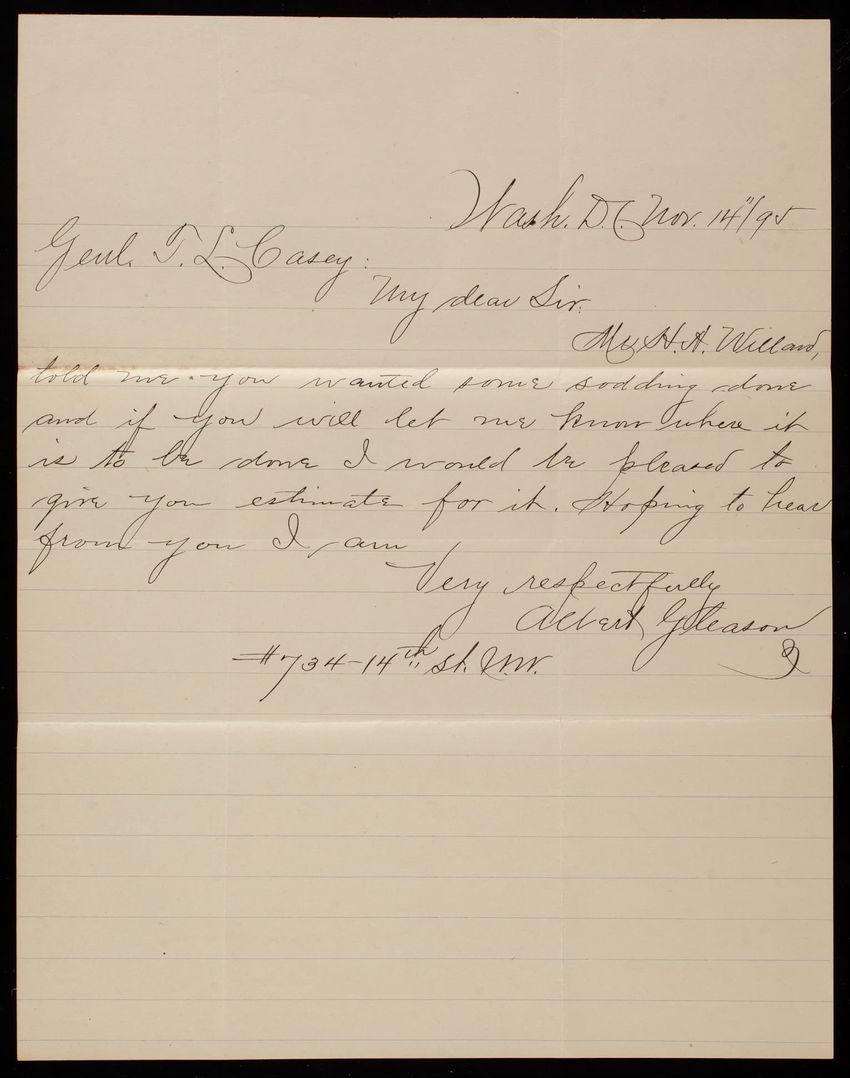 Wash. D.C. Nov. 14"/95
Genl. T. L. Casey:
My dear Sir.
Mr. H. A. Willard,
told me you wanted some sodding done
and if you will let me know where it
is to be done I would be pleased to
give you estimate for it. Hoping to hear
from you I am
Very respectfully
Albert Gleason
#734-14th St. N.W.